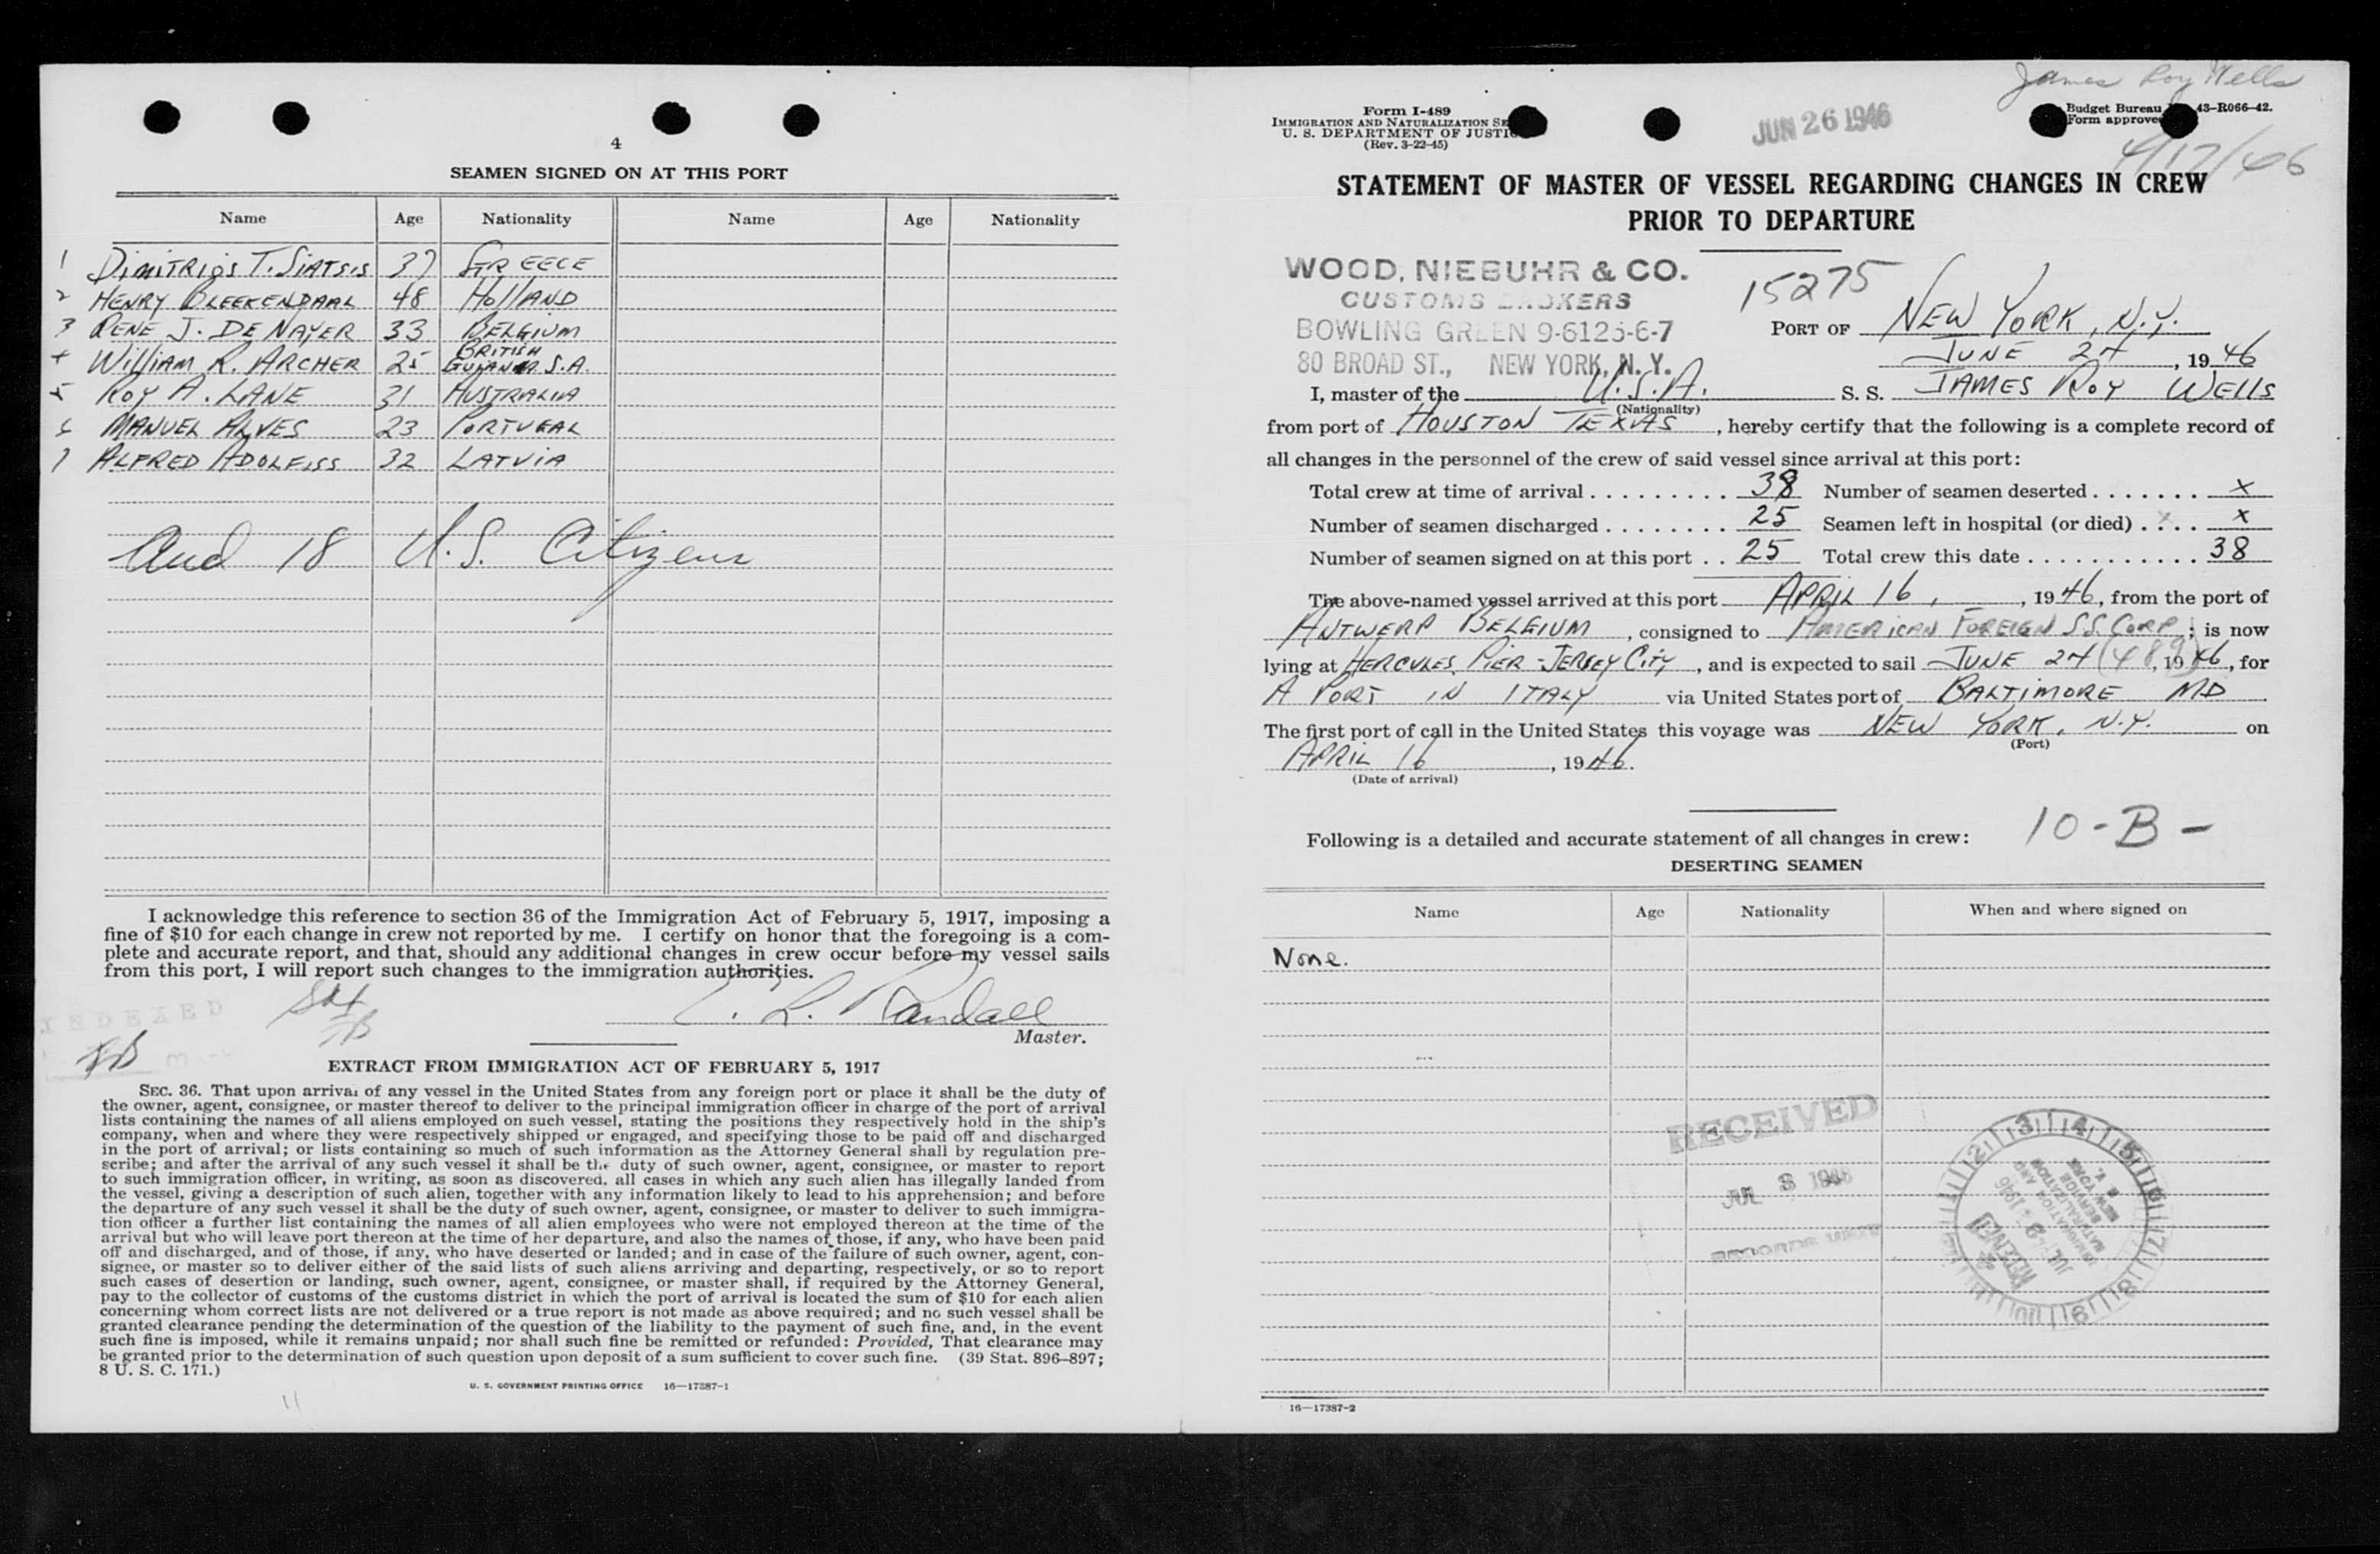 4
SEAMEN SIGNED ON AT THIS PORT
Name Age Nationality Name Age Nationality
1 DIMITRIOS T. SIATSIS 37 GREECE
2 HENRY BLEEKENDAAL 48 HOLLAND
3 RENE J. DE NAYER 33 BELGIUM
4 WILLIAM R. ARCHER 25 BRITISH GUIANA S.A.
5 ROY A. LANE 31 AUSTRALIA
6 MANUEL ALVES 23 PORTUGAL
7 ALFRED ADOLFISS 32 LATVIA
And 18 U.S. Citizens
I acknowledge this reference to section 36 of the Immigration Act of February 5, 1917, imposing a
fine of $10 for each change in crew not reported by me. I certify on honor that the foregoing is a com-
plete and accurate report, and that, should any additional changes in crew occur before my vessel sails
from this port, I will report such changes to the immigration authorities.
INDEXED
L. Randall
Master.
EXTRACT FROM IMMIGRATION ACT OF FEBRUARY 5, 1917
SEC. 36. That upon arrival of any vessel in the United States from any foreign port or place it shall be the duty of
the owner, agent, consignee, or master thereof to deliver to the principal immigration officer in charge of the port of arrival
lists containing the names of all aliens employed on such vessel, stating the positions they respectively hold in the ship's
company, when and where they were respectively shipped or engaged, and specifying those to be paid off and discharged
in the port of arrival; or lists containing so much of such information as the Attorney General shall by regulation pre-
scribe; and after the arrival of any such vessel it shall be the duty of such owner, agent, consignee, or master to report
to such immigration officer, in writing, as soon as discovered, all cases in which any such alien has illegally landed from
the vessel, giving a description of such alien, together with any information likely to lead to his apprehension; and before
the departure of any such vessel it shall be the duty of such owner, agent, consignee, or master to deliver to such immigra-
tion officer a further list containing the names of all alien employees who were not employed thereon at the time of the
arrival but who will leave port thereon at the time of her departure, and also the names of those, if any, who have been paid
off and discharged, and of those, if any, who have deserted or landed; and in case of the failure of such owner, agent, con-
signee, or master so to deliver either of the said lists of such aliens arriving and departing, respectively, or so to report
such cases of desertion or landing, such owner, agent, consignee, or master shall, if required by the Attorney General,
pay to the collector of customs of the customs district in which the port of arrival is located the sum of $10 for each alien
concerning whom correct lists are not delivered or a true report is not made as above required; and no such vessel shall be
granted clearance pending the determination of the question of the liability to the payment of such fine, and, in the event
such fine is imposed, while it remains unpaid; nor shall such fine be remitted or refunded: Provided, That clearance may
be granted prior to the determination of such question upon deposit of a sum sufficient to cover such fine. (39 Stat. 896–897;
8 U. S. C. 171.)
U. S. GOVERNMENT PRINTING OFFICE 16—17387-1
11
James Roy Wells
Form I-489
IMMIGRATION AND NATURALIZATION SE
U. S. DEPARTMENT OF JUSTIC
(Rev. 3-22-45)
JUN 26 1946
Budget Bureau 43–R066–42.
Form approve
4/17/46
STATEMENT OF MASTER OF VESSEL REGARDING CHANGES IN CREW
PRIOR TO DEPARTURE
WOOD, NIEBUHR & CO.
CUSTOMS BROKERS
BOWLING GREEN 9-6125-6-7
80 BROAD ST., NEW YORK, N. Y.
15275
PORT OF NEW YORK, N.Y.
JUNE 24, 1946
I, master of the U.S.A. S. S. JAMES ROY WELLS
(Nationality)
from port of HOUSTON TEXAS, hereby certify that the following is a complete record of
all changes in the personnel of the crew of said vessel since arrival at this port:
Total crew at time of arrival 38 Number of seamen deserted X
Number of seamen discharged 25 Seamen left in hospital (or died) X
Number of seamen signed on at this port 25 Total crew this date 38
The above-named vessel arrived at this port APRIL 16, 1946, from the port of
ANTWERP BELGIUM, consigned to AMERICAN FOREIGN S.S. CORP; is now
lying at HERCULES PIER - JERSEY CITY, and is expected to sail JUNE 24 (489), 1946, for
A PORT IN ITALY via United States port of BALTIMORE MD
The first port of call in the United States this voyage was NEW YORK, N.Y. on
(Port)
APRIL 16, 1946.
(Date of arrival)
10-B-
Following is a detailed and accurate statement of all changes in crew:
DESERTING SEAMEN
Name Age Nationality When and where signed on
None.
RECEIVED
JUL 3 1946
RECORDS UNIT
16—17387-2